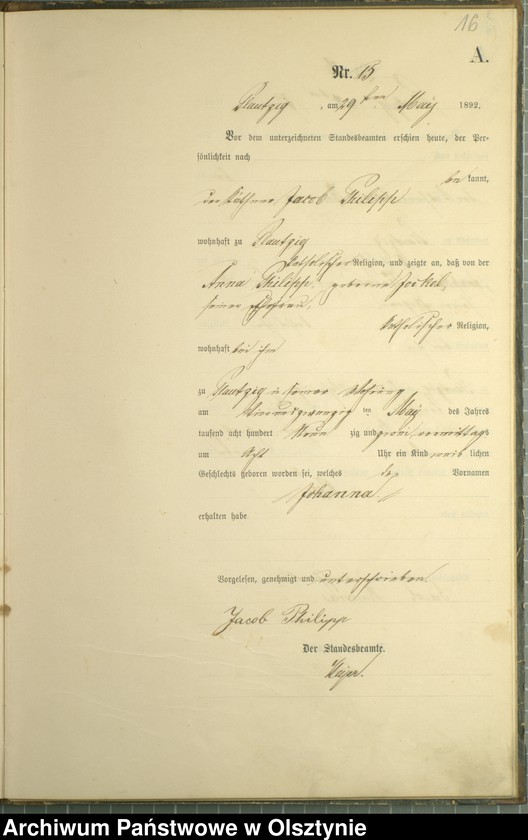 16
A.
Nr. 15
Plautzig, am 29ten May 1892.
Vor dem unterzeichneten Standesbeamten erschien heute, der Per-
sönlichkeit nach
be kannt,
der Käthner Jacob Philipp
wohnhaft zu Plautzig
katholischer Religion, und zeigte an, daß von der
Anna Philipp, geborene Jockel,
seiner Ehefrau,
katholischer Religion,
wohnhaft bei ihm
zu Plautzig in seiner Wohnung
am ten May des Jahres
tausend acht hundert Neun zig und zwei vormittags
um Acht Uhr ein Kind weib lichen
Geschlechts geboren worden sei, welches Vornamen
Johanna
erhalten habe
Vorgelesen, genehmigt und unterschrieben
Jacob Philipp
Der Standesbeamte.
Archiwum Państwowe w Olsztynie